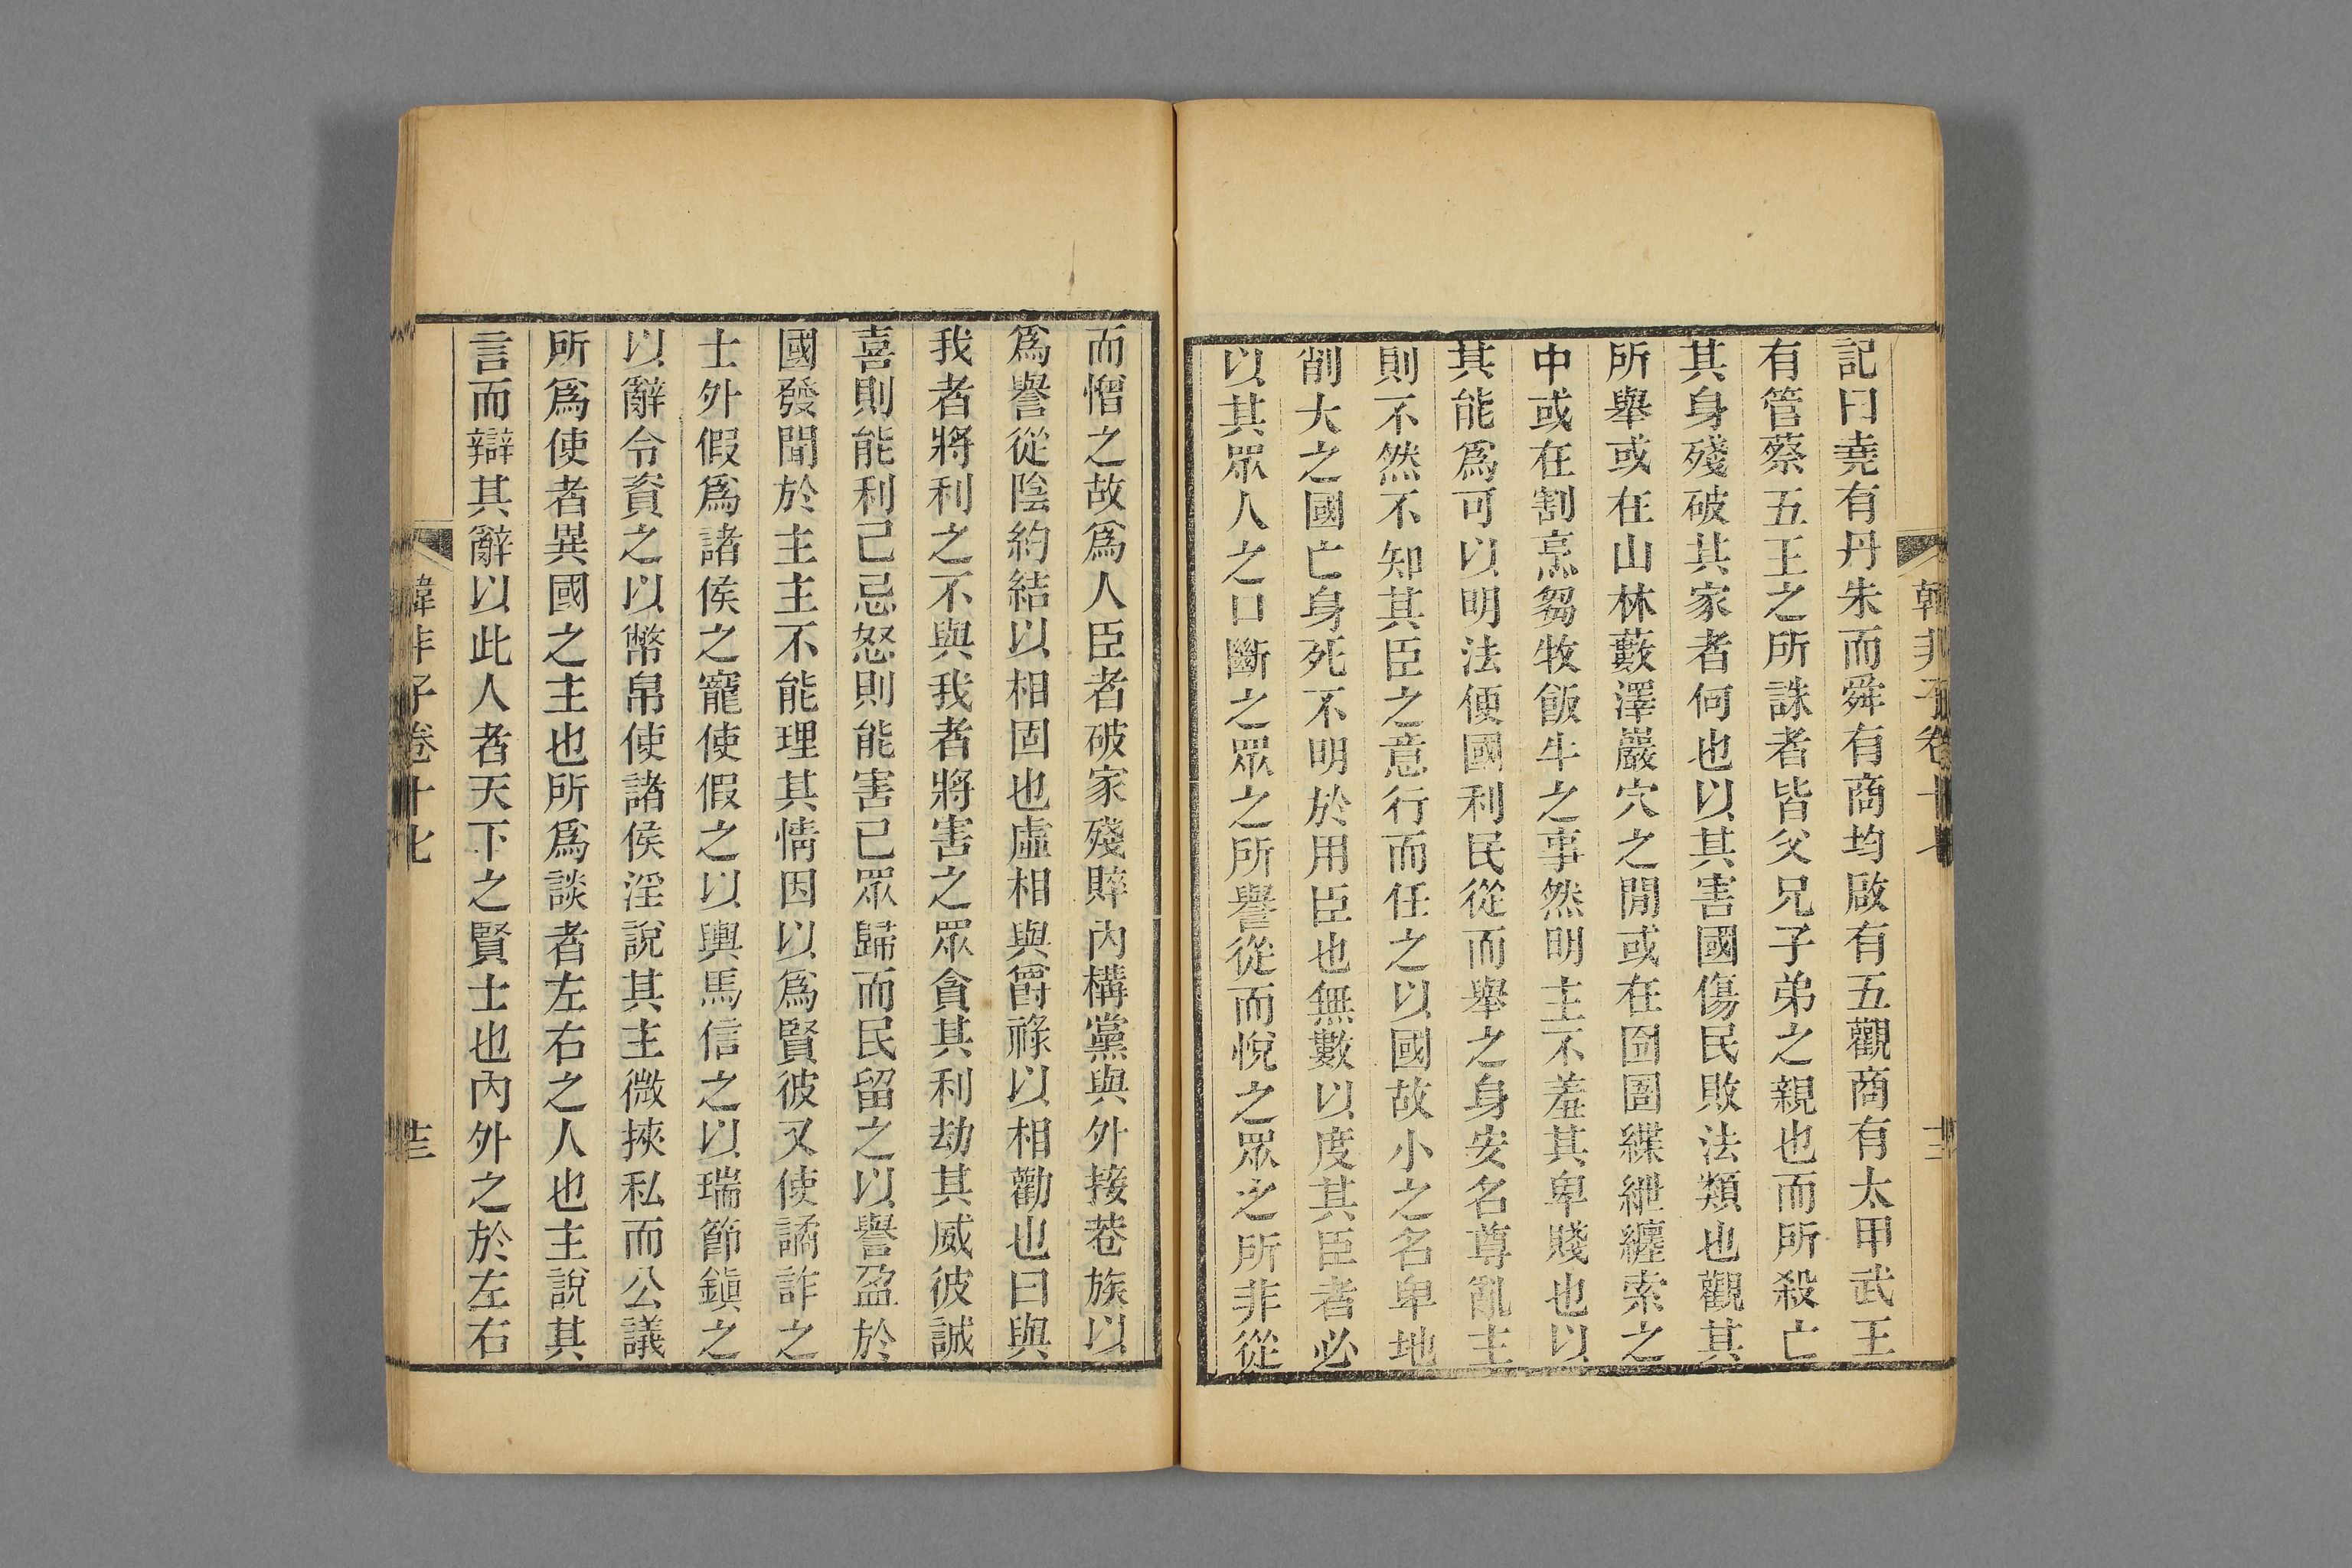 記曰堯有丹朱而舜有商均啟有五觀商有太甲武王
有管蔡五王之所誅者皆父兄子弟之親也而所殺亡
其身殘破其家者何也以其害國傷民敗法類也觀其
所舉或在山林藪澤巖穴之閒或在囹圄緤紲纏索之
中或在割烹芻牧飯牛之事然明主不羞其卑賤也以
其能爲可以明法便國利民從而舉之身安名尊亂主
則不然不知其臣之意行而任之以國故小之名卑地
削大之國亡身死不明於用臣也無數以度其臣者必
以其眾人之口斷之眾之所譽從而悅之眾之所非從
而憎之故爲人臣者破家殘賥內構黨與外接巷族以
爲譽從陰約結以相固也虛相與爵祿以相勸也曰與
我者將利之不與我者將害之眾貪其利劫其威彼誠
喜則能利己忌怒則能害己眾歸而民留之以譽盈於
國發聞於主主不能理其情因以爲賢彼又使譎詐之
士外假爲諸侯之寵使假之以輿馬信之以瑞節鎮之
以辭令資之以幣帛使諸侯淫說其主微挾私而公議
所爲使者異國之主也所爲談者左右之人也主說其
言而辯其辭以此人者天下之賢士也內外之於左右
韓非子卷十七